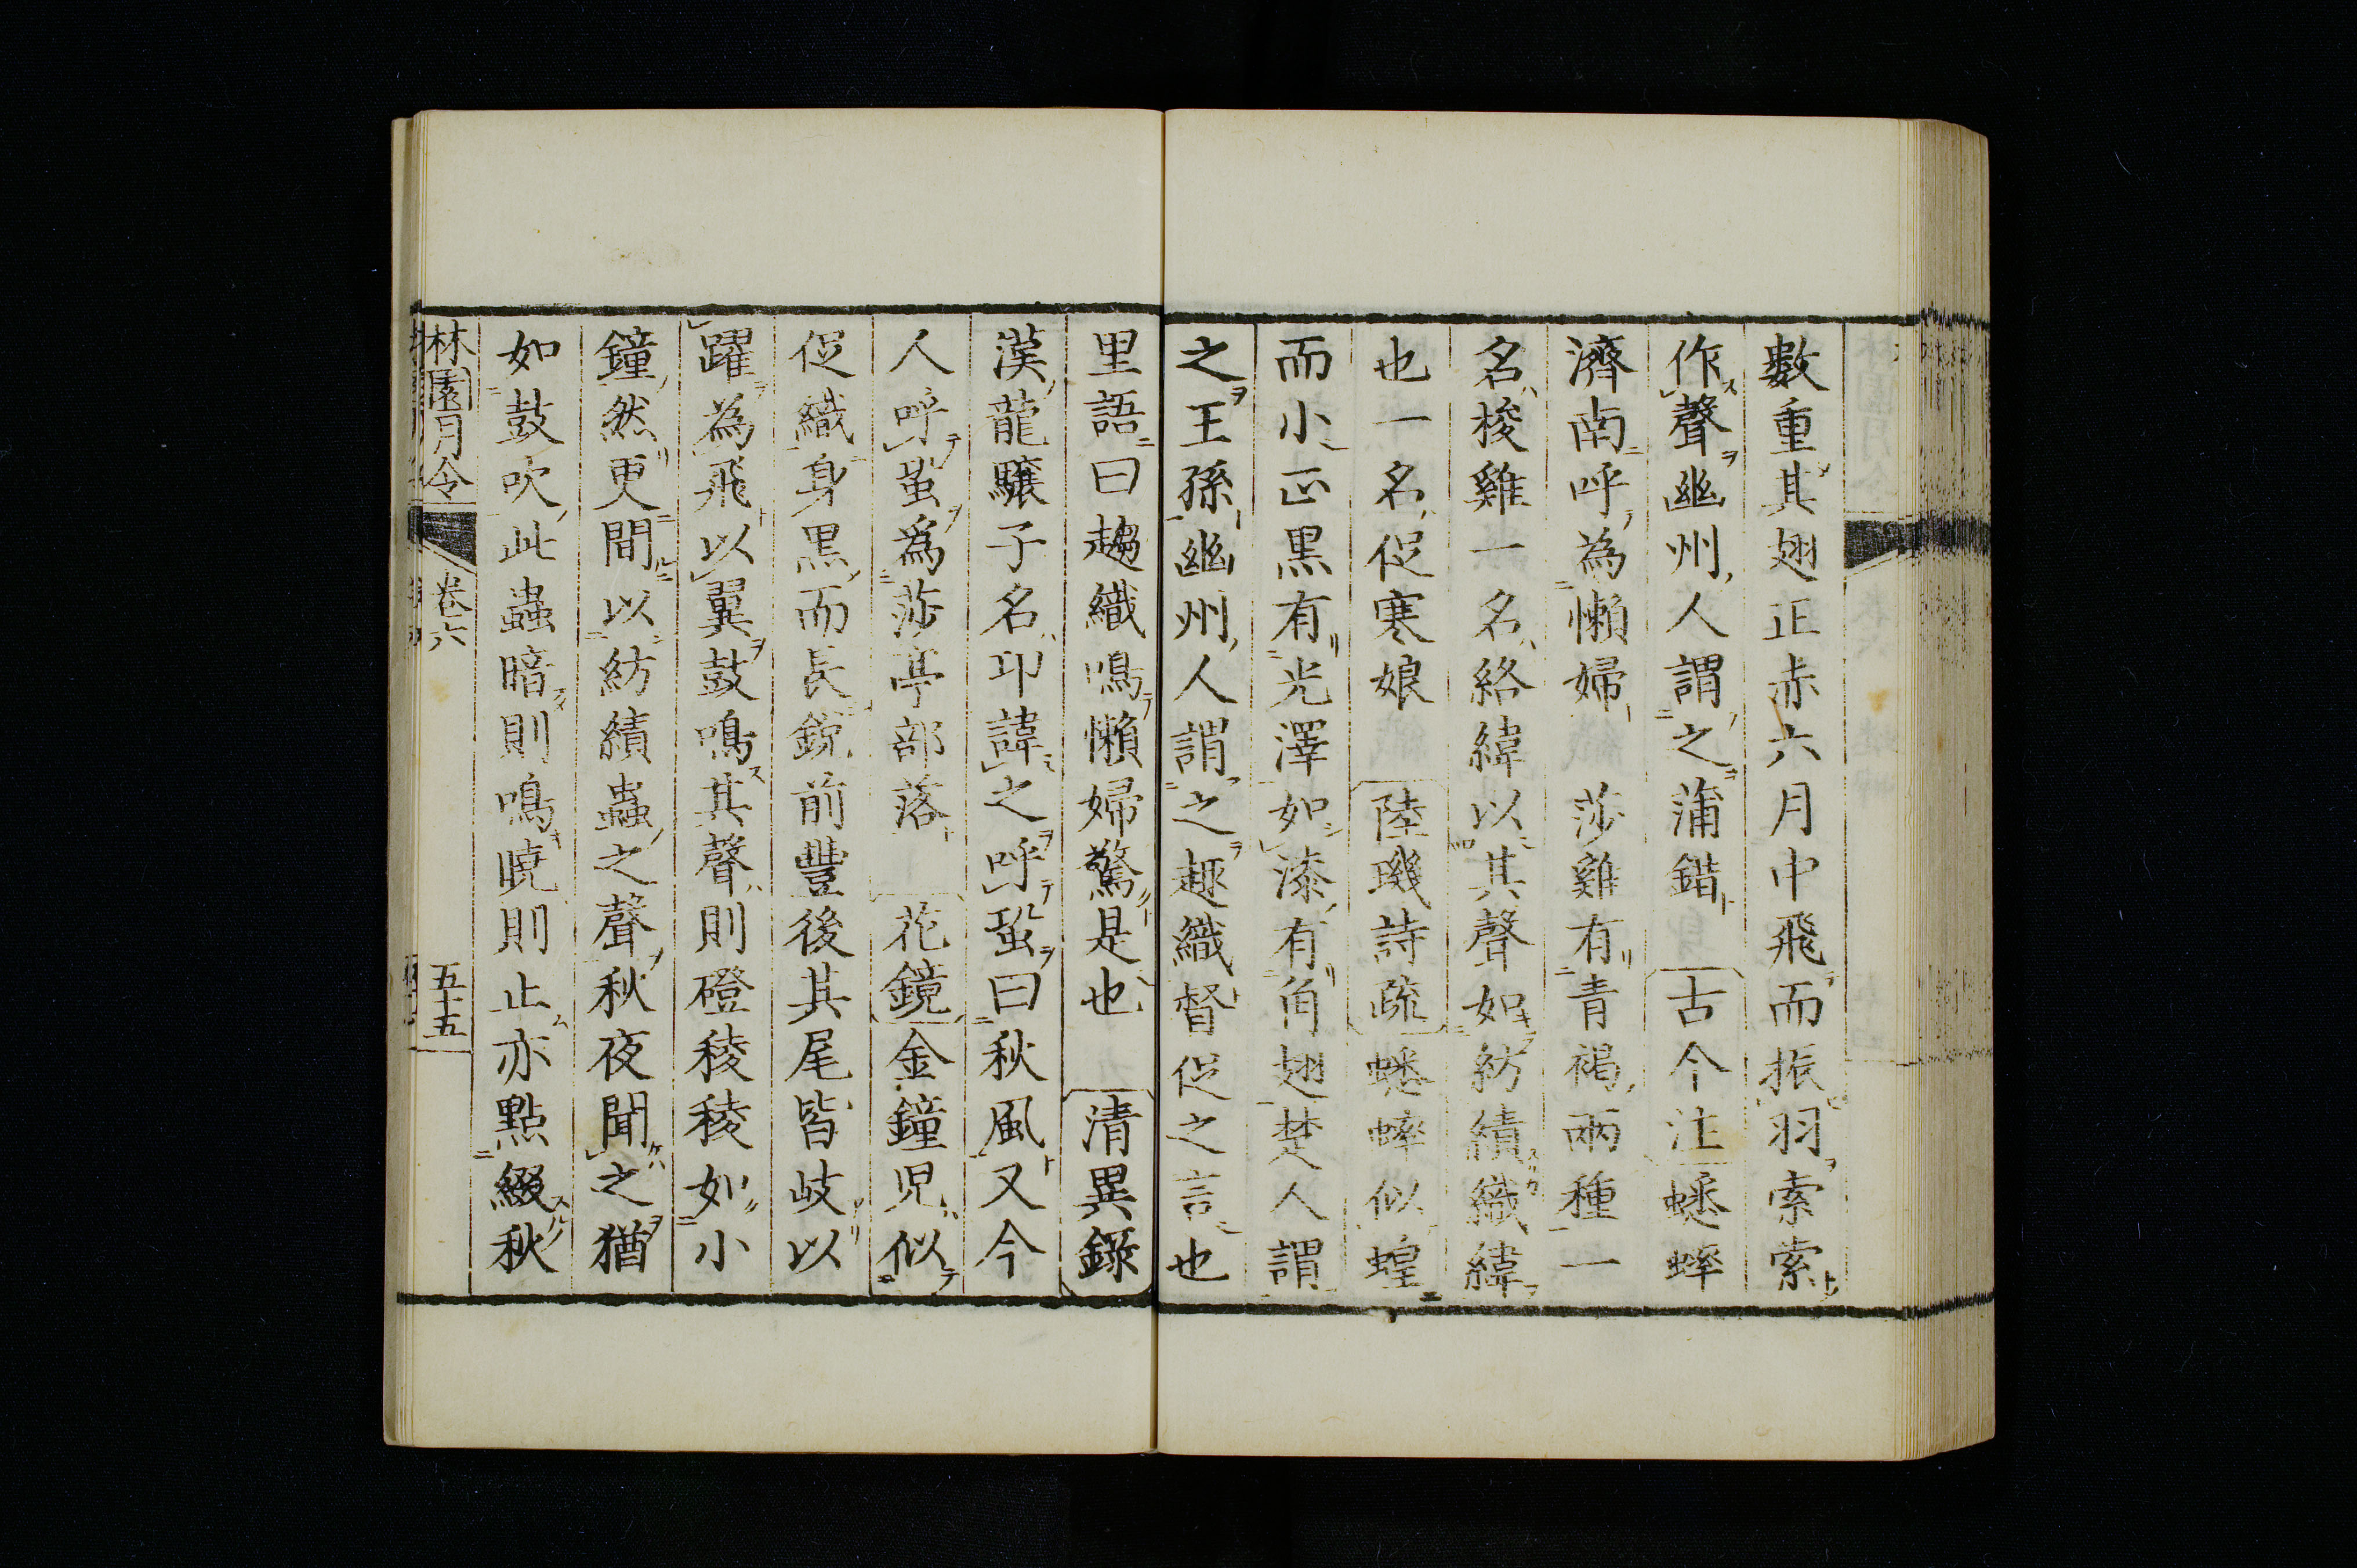 數重其翅正赤六月中飛而振羽索索
作聲幽州人謂之蒲錯 古今注蟋蟀
濟南呼為懶婦 莎雞有青褐兩種一
名梭雞一名絡緯以其聲如紡績織緯
也一名促寒娘 陸璣詩疏蟋蟀似蝗
而小正黒有光澤如漆有角翅楚人謂
之王孫幽州人謂之趣織督促之言也
里語曰趨織鳴懶婦驚是也 清異錄
漢龍驤子名卭諱之呼蛩曰秋風又今
人呼蛩為莎亭部落 花鏡金鐘児似
促織身黒而長銳前豐後其尾皆岐以
躍為飛以翼鼓鳴其聲則磴稜稜如小
鐘然更間以紡績蟲之聲秋夜聞之猶
如鼓吹此蟲暗則鳴暁則止亦點綴秋
林園月令 卷六 五十五